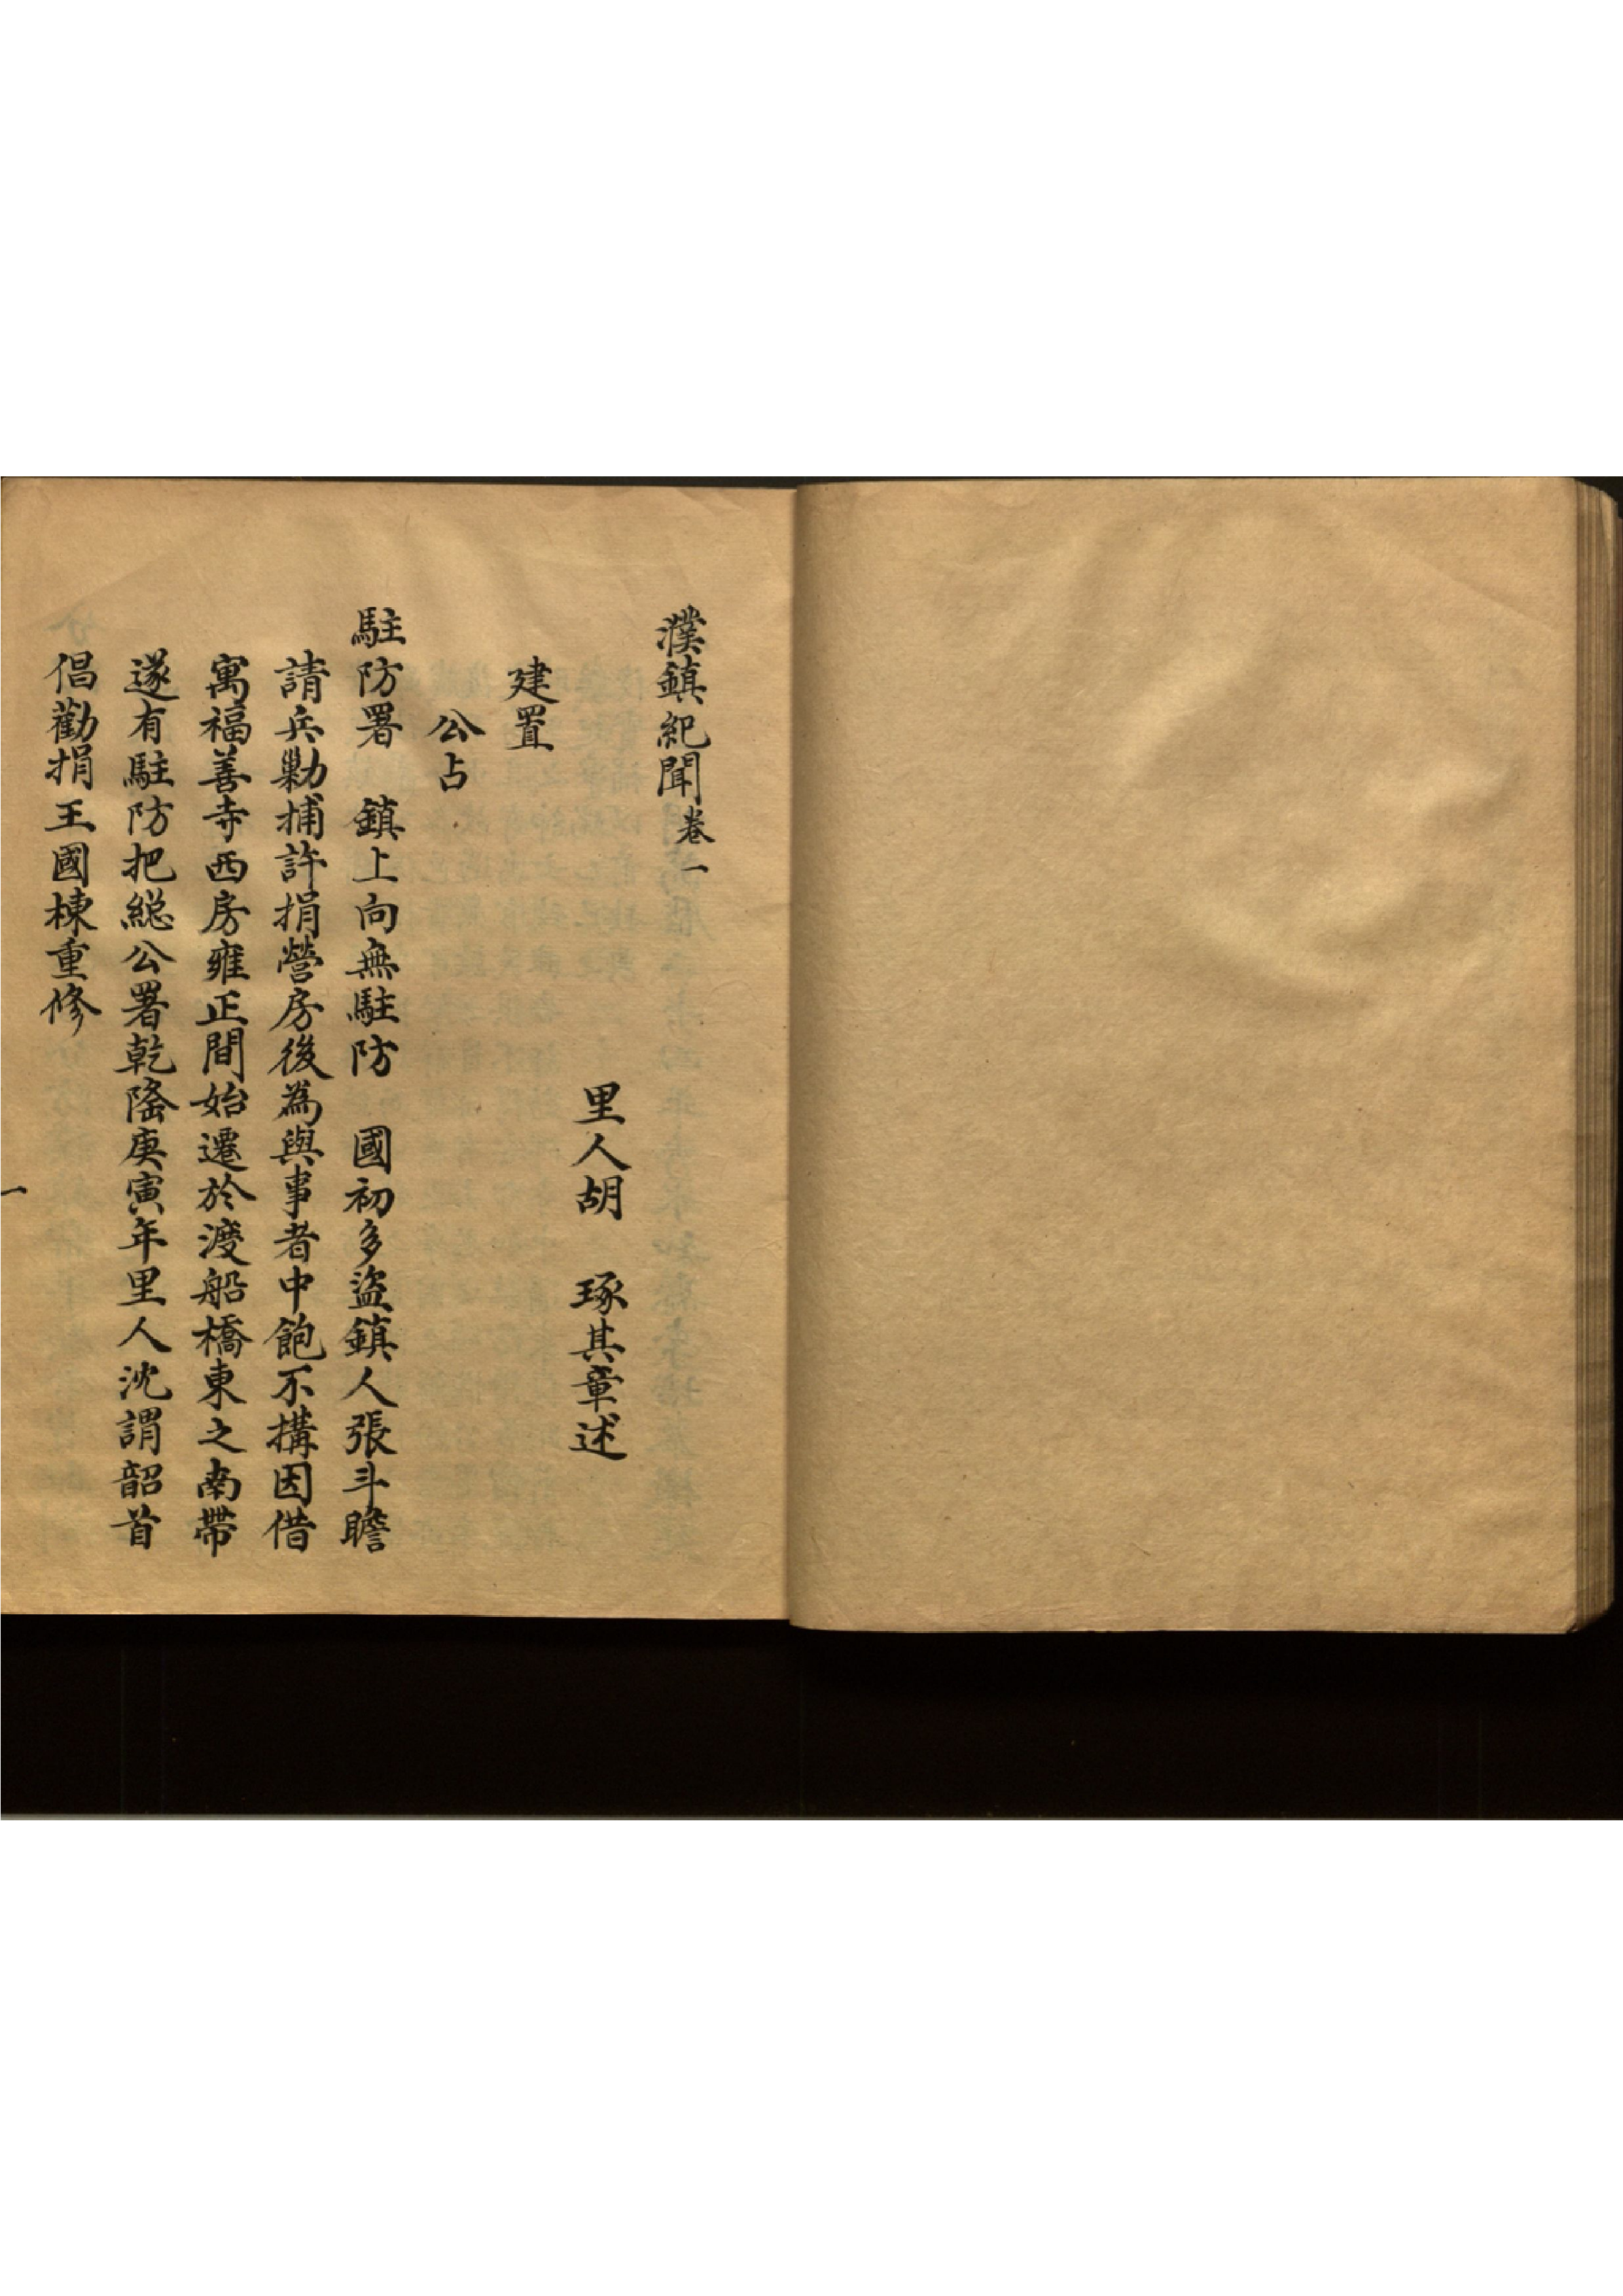 濮鎮紀聞卷一
里人胡 琢其章述
建置
公占
駐防署 鎮上向無駐防 國初多盜鎮人張斗瞻
請兵勦捕許捐營房後為與事者中飽不搆因借
寓福善寺西房雍正間始遷於渡船橋東之南帶
遂有駐防把総公署乾隆庚寅年里人沈謂韶首
倡勸捐王國棟重修
一